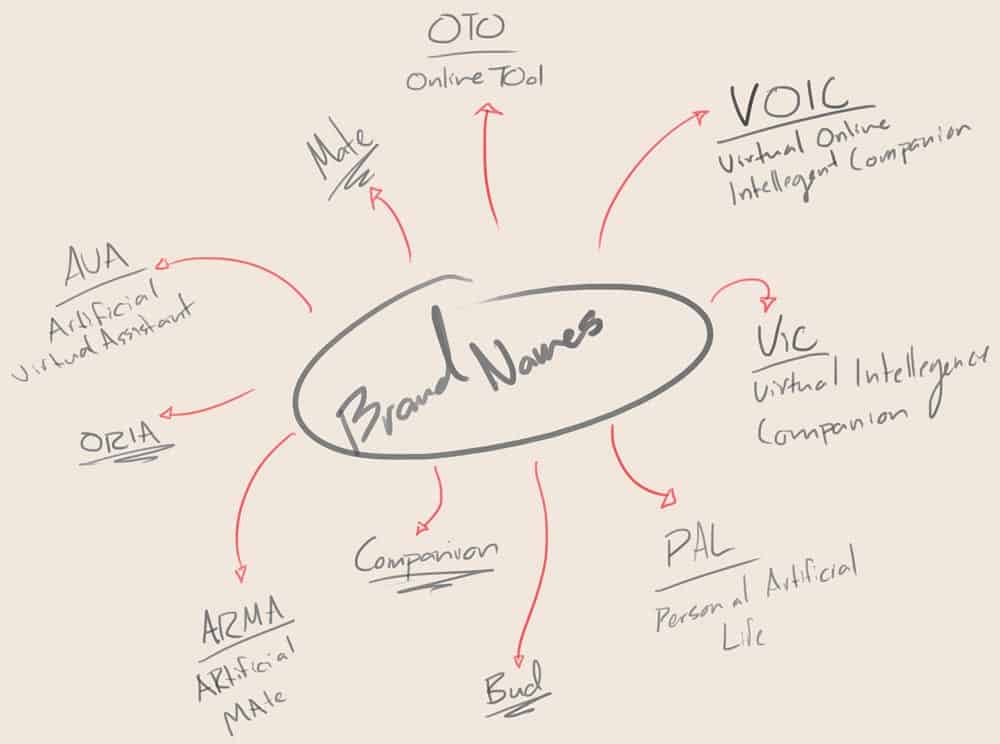 OTO
Online TOol
VOIC
Virtual Online
Intellegent Companion
Mate
AVA
Artificial
Virtual Assistant
Brand Names
Vic
Virtual Intellegence
Companion
ORIA
Companion
PAL
Personal Artificial
Life
ARMA
ARtificial
MAte
Bud